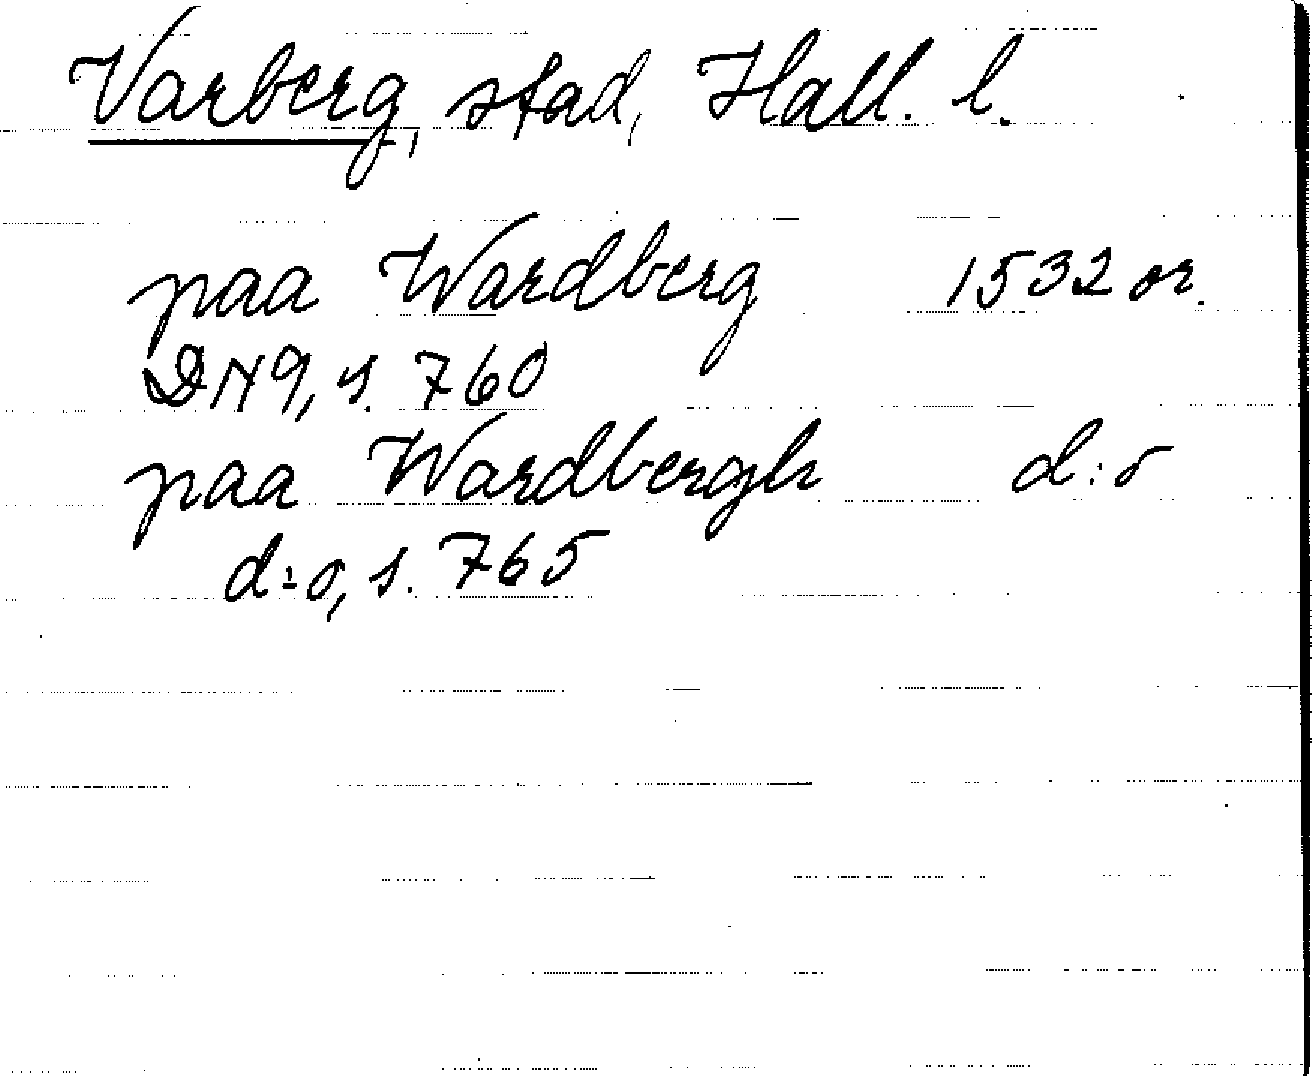 Varberg, stad, Hall. l.
paa Wardberg 1532 or.
DN 9, s. 760
paa Wardbergh d:o
d:o, s. 765